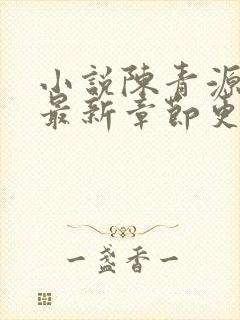 小説陳青源
最新章節更
一盏香一